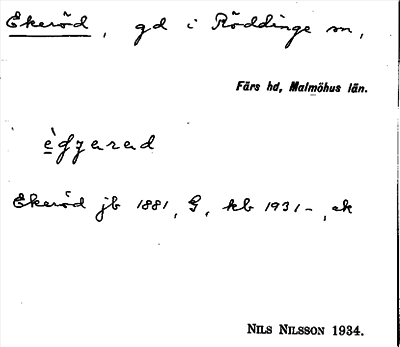 Ekeröd, gd i Röddinge sn,
Färs hd, Malmöhus län.
Ekeröd jb 1881, G, kb 1931–, ek
NILS NILSSON 1934.